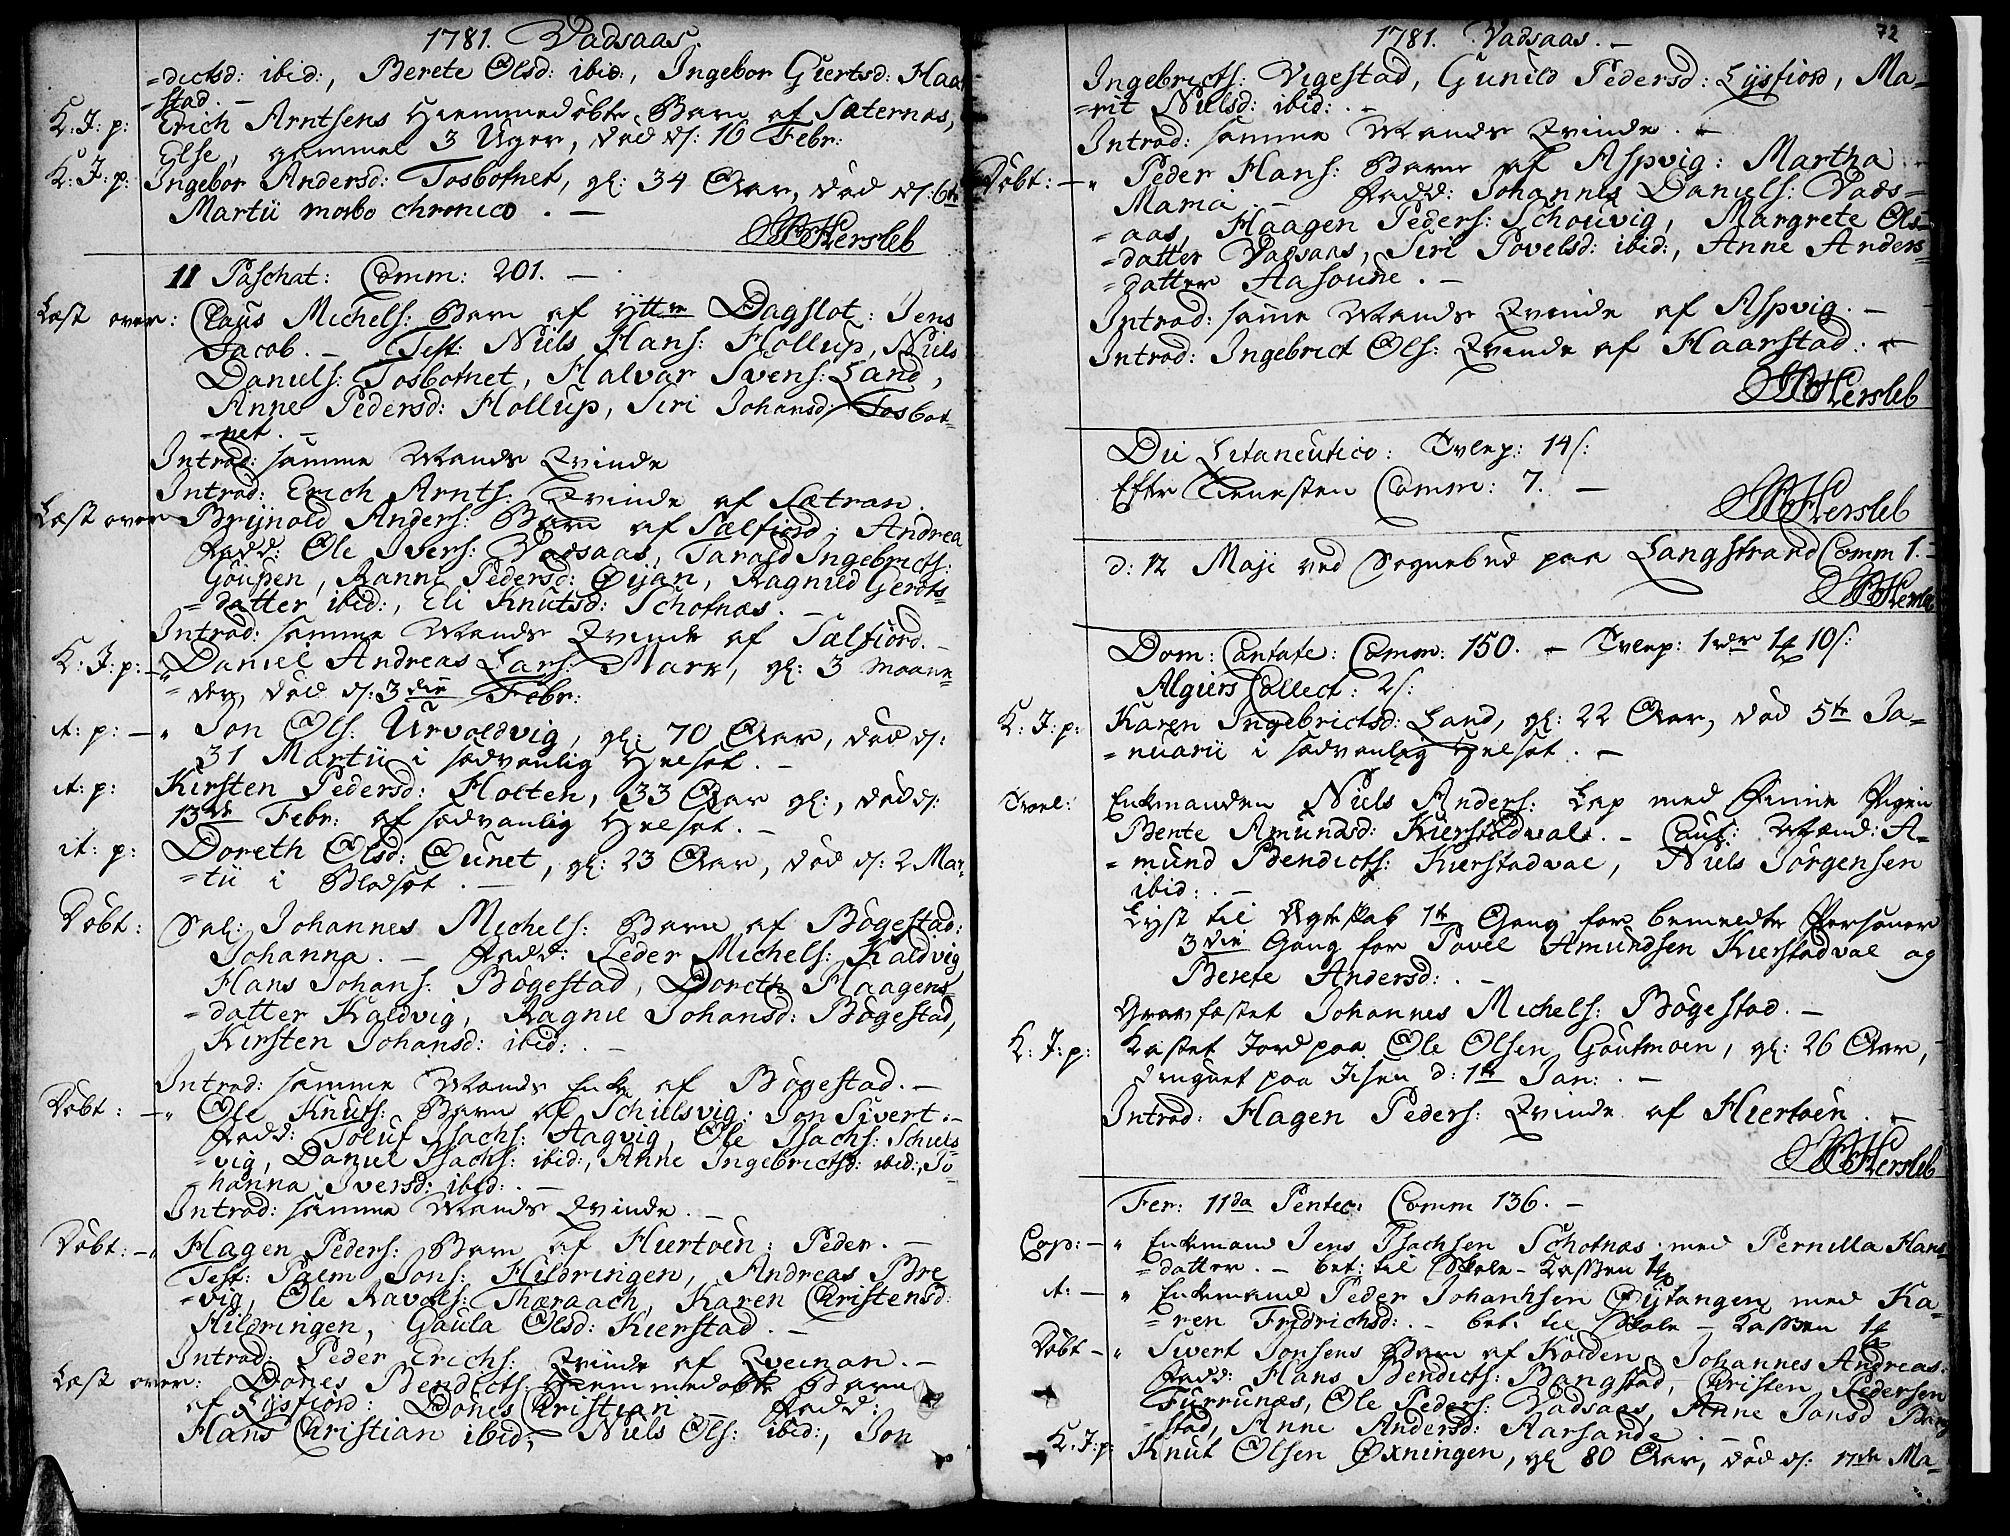 1781. Vadsaas.
=dictsd: ibid:, Berete Olsd: ibid:, Ingebor Giertsd: Haar
=stad. —
K: J: p: Erich Arntsens Hiemmedøbte Barn af Sæternæs,
Else, gammel 3 Uger, død d: 16 Febr:
K: J: p: Ingebor Andersd: Tosbotnet, gl: 34 Aar, død d: 6te
Martii morbo chronico. —
Hersleb
11 Paschat: Comm: 201. —
Læst over: Claus Michels: Barn af Yttre Dagslot: Jens
Jacob. — Test: Niels Hans: Hollup, Niels
Daniels: Tosbotnet, Halvar Svens: Land,
Anne Pedersd: Hollup, Siri Johansd: Tosbot=
=net. —
Introd: samme Mands Qvinde
Introd: Erich Arnts: Qvinde af Sætran.
Læst over Brijnold Anders: Barn af Sælfiord: Andrea
Fadd: Ole Ivers: Vadsaas, Tarald Ingebricts:
Gaupen, Ranni Pedersd: Øijan, Ragnild Gerdts=
=datter ibid:, Eli Knutsd: Schotnæs. —
Introd: samme Mands Qvinde af Sælfiord. —
K: J: p: — Daniel Andreas Lars: Marr, gl: 3 Maane=
=der, død d: 3die Febr:
it: p: — Jon Ols: Urvoldvig, gl: 70 Aar, død d:
31 Martii i sædvanlig Helsot. —
it: p: Kirsten Pedersd: Holten, 33 Aar gl:, død d:
13de Febr: af sædvanlig Helsot. —
it: p: Doreth Olsd: Ounet, gl: 23 Aar, død d: 2 Mar=
=tii i Blodsot. —
Døbt: Sal: Johannes Michels: Barn af Bøgestad:
Johanna. — Fadd: Peder Michels: Kaldvig
Hans Johans: Bøgestad, Doreth Haagens=
=datter Kaldvig, Ragnil Johansd: Bøgestad,
Kirsten Johansd: ibid: —
Introd: samme Mands Enke af Bøgestad. —
Døbt: — Ole Knuts: Barn af Schielsvig: Jon Sivert. —
Fadd: Toluf Isachs: Aagvig, Ole Isachs: Schiels
=vig, Daniel Isachs: ibid:, Anne Ingebrictsd: ibid:, Jo
=hanna Iversd: ibid: —
Introd: samme Mands Qvinde. —
Døbt: — Hagen Peders: Barn af Hiertøen: Peder. —
Test: Palm Jons: Hildringen, Andreas Bre
=vig, Ole Ravels: Theraach, Karen Christensd:
Hildringen, Gaula Olsd: Kierstad. —
Introd: Peder Erichs: Qvinde af Qveinan. —
Læst over: Dones Bendicts: Hiemmedøbte Barn
af Lysfiord: Dones Christian. Fadd:
Hans Christian ibid:, Niels Ols: ibid:, Jon
1781. Vadsaas. — 72
Ingebricts: Vigestad, Gunild Pedersd: Lysfiord, Ma=
=rit Nielsd: ibid: —
Introd: samme Mands Qvinde. —
Døbt: — Peder Hans: Barn af Aspvig: Martha
Maria. — Fadd: Johannes Daniels: Vads=
=aas, Haagen Peders: Schouvig, Margrete Ols=
=datter Vadsaas, Siri Povelsd: ibid:, Anne Anders=
=datter Aasoune. —
Introd: samme Mands Qvinde af Aspvig. —
Introd: Ingebrict Ols: Qvinde af Haarstad. —
Hersleb
Die Litaneutico: Tverp: 14 s:
Efter Tienesten Comm: 7. —
Hersleb
d: 12 Maji ved Sognebud paa Langstrand Comm 1. —
Hersleb
Dom: Cantate: Comm: 150. — Tverp: 1 10 s:
Algiers Collect: 2 s:
K: J: p: Karen Ingebrictsd: Land, gl: 22 Aar, død 5te Ja=
=nuarii i sædvanlig Helsot. —
Trol: Enkemanden Niels Anders: Lap med Pigen
Bente Amundsd: Kierstadval. — Caut: Mænd: A=
=mund Bendicts: Kierstadval, Niels Jørgensen
ibid: —
Lyst til Ægteskab 1te Gang for bemeldte Personer
3die Gang for Povel Amundsen Kierstadval og
Berete Andersd: —
Gravfæstet Johannes Michels: Bøgestad. —
K: J: p: Kastet Jord paa Ole Olsen Goutmoen, gl: 26 Aar,
druknet paa Isen d: 1te Jan: —
Introd: Hagen Peders: Qvinde af Hiertøen. —
Hersleb
Fer: 11da Pentec: Comm 136. —
Cop: — Enkemand Jens Isachsen Schotnæs med Pernilla Hans=
=datter. — bet: til Skole-Kassen 1
it: — Enkemand Peder Johanhsen Øijtangen med Ka=
=ren Fridrichsd: — bet: til Skole-Kassen 1
Døbt — Sivert Jonsens Barn af Kolden: Johannes Andreas:
Fadd: Hans Bendicts: Bangstad, Christen Pedersen
Furrunæs, Ole Peders: Vadsaas, Anne Jonsd Bang
=stad, Anne Andersd: Aarsande. —
K: J: p: Knut Olsen Øxningen, gl 80 Aar, død d: 17de Ma=